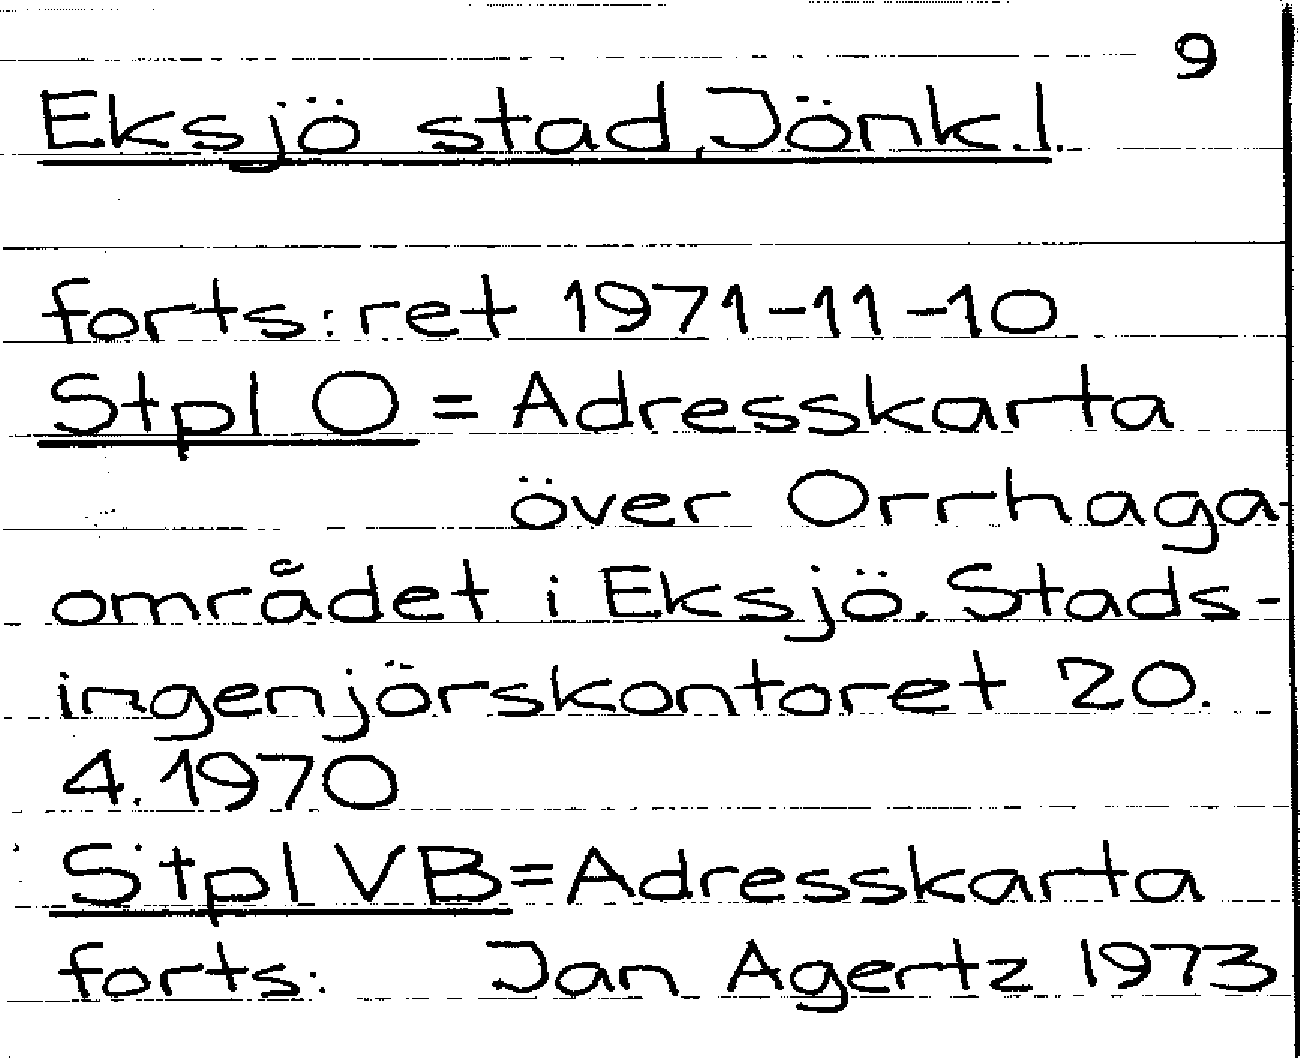 9
Eksjö stad, Jönk.l.
forts: ret 1971-11-10
Stpl O = Adresskarta
över Orrhaga-
området i Eksjö. Stads-
ingenjörskontoret 20.
4.1970
Stpl VB = Adresskarta
forts: Jan Agertz 1973